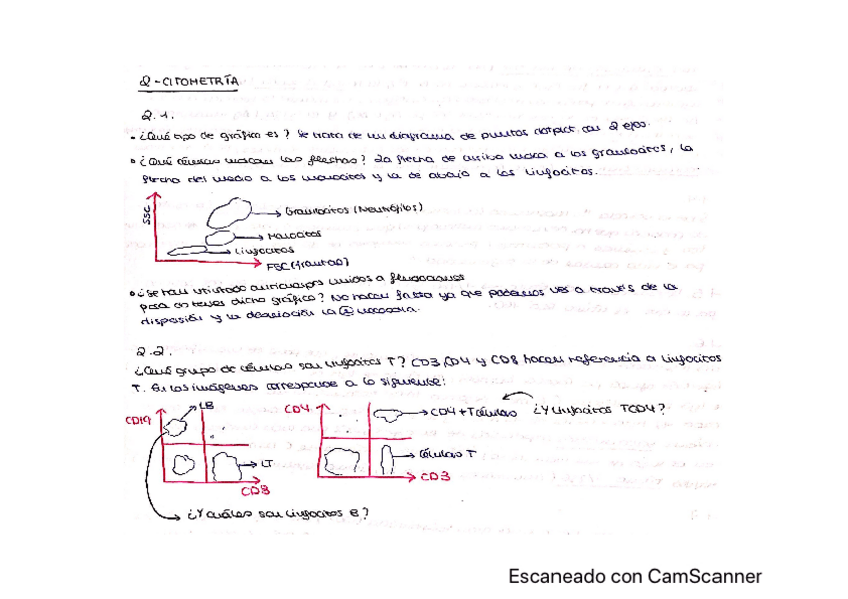 2-CITOMETRÍA
2.1.
• ¿Qué tipo de gráfico es? Se trata de un diagrama de puntos dotplot con 2 ejes.
• ¿Qué células marcan las flechas? La flecha de arriba marca a los granulocitos, la
flecha del medio a los monocitos y la de abajo a los linfocitos.
SSC
Granulocitos (Neutrófilos)
Monocitos
Linfocitos
FSC (frontal)
• ¿Se han utilizado anticuerpos unidos a fluorocromos
para obtener dicho gráfico? No hacen falta ya que podemos ver a través de la
disposición y la desviación la
2.2.
¿Qué grupo de células son linfocitos T? CD3, CD4 y CD8 hacen referencia a linfocitos
T. En las imágenes corresponde a lo siguiente:
CD19
LB
LT
CD8
CD4
CD4+Tcélulas
¿Y linfocitos TCD4?
Células T
CD3
¿Y cuáles son linfocitos B?
Escaneado con CamScanner